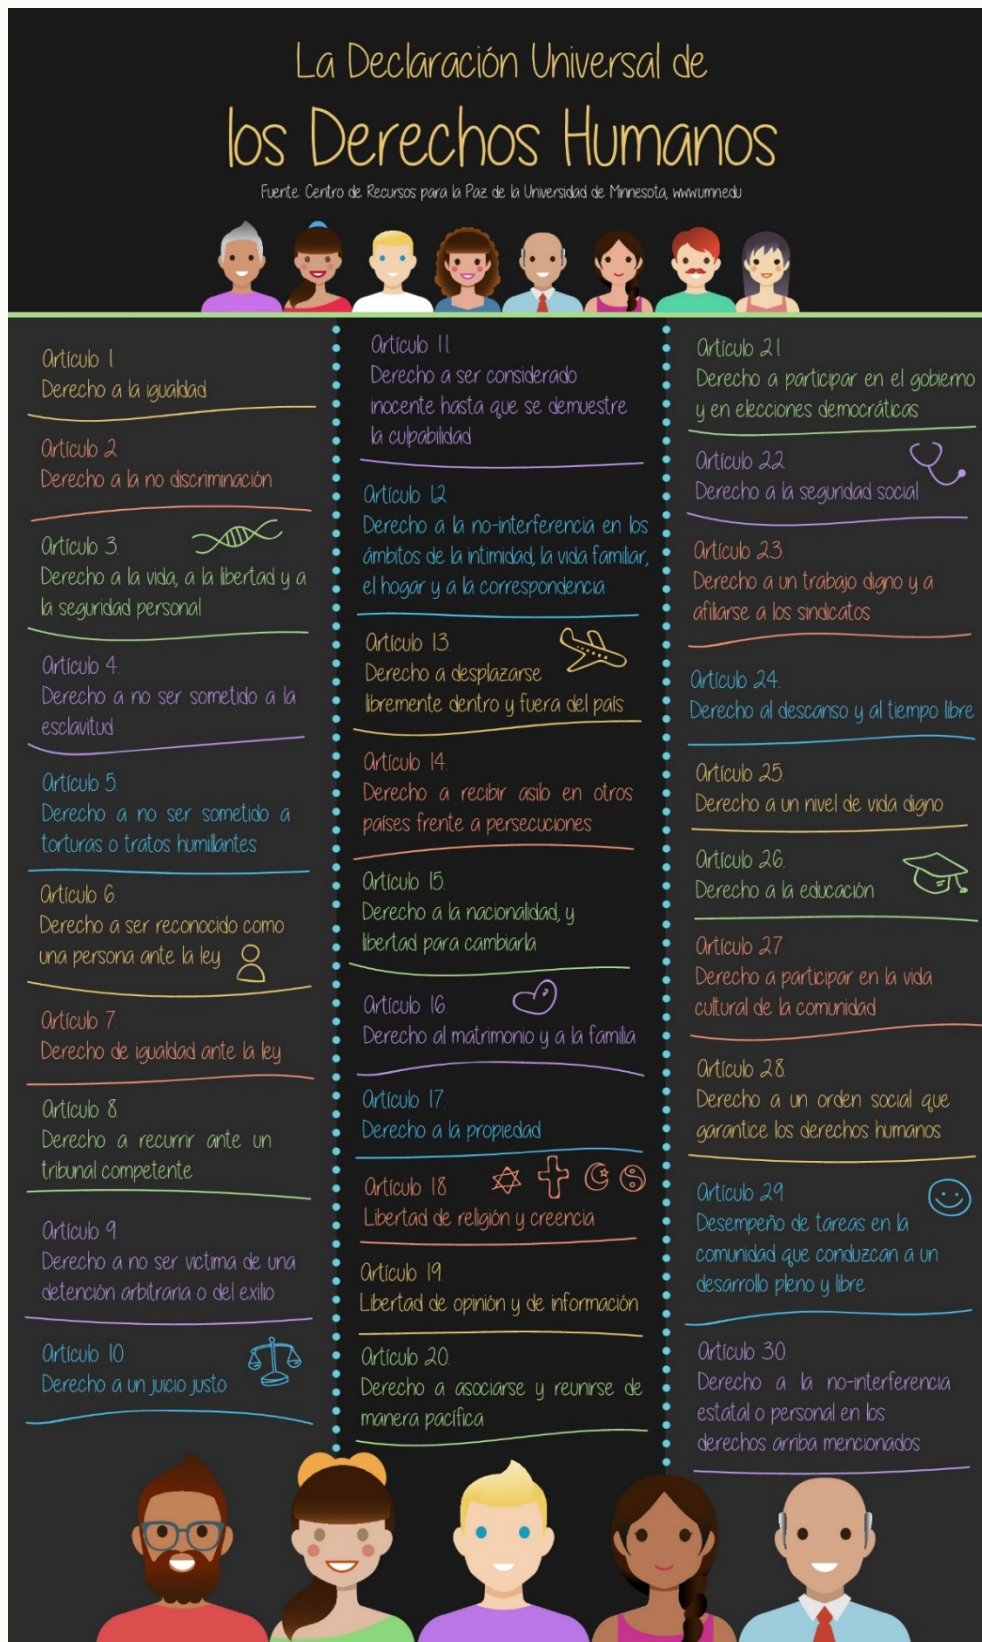 La Declaración Universal de
los Derechos Humanos
Fuente: Centro de Recursos para la Paz de la Universidad de Minnesota, www.umn.edu
Artículo 1
Derecho a la igualdad
Artículo 2
Derecho a la no discriminación
Artículo 3.
Derecho a la vida, a la libertad y a
la seguridad personal
Artículo 4.
Derecho a no ser sometido a la
esclavitud
Artículo 5.
Derecho a no ser sometido a
torturas o tratos humillantes
Artículo 6.
Derecho a ser reconocido como
una persona ante la ley
Artículo 7.
Derecho de igualdad ante la ley
Artículo 8.
Derecho a recurrir ante un
tribunal competente
Artículo 9.
Derecho a no ser victima de una
detención arbitraria o del exilio
Artículo 10.
Derecho a un juicio justo
Artículo 11.
Derecho a ser considerado
inocente hasta que se demuestre
la culpabilidad
Artículo 12.
Derecho a la no-interferencia en los
ámbitos de la intimidad, la vida familiar,
el hogar y a la correspondencia
Artículo 13.
Derecho a desplazarse
libremente dentro y fuera del país
Artículo 14.
Derecho a recibir asilo en otros
países frente a persecuciones
Artículo 15.
Derecho a la nacionalidad, y
libertad para cambiarla
Artículo 16.
Derecho al matrimonio y a la familia
Artículo 17.
Derecho a la propiedad
Artículo 18.
Libertad de religión y creencia
Artículo 19.
Libertad de opinión y de información
Artículo 20.
Derecho a asociarse y reunirse de
manera pacífica
Artículo 21.
Derecho a participar en el gobierno
y en elecciones democráticas
Artículo 22.
Derecho a la seguridad social
Artículo 23.
Derecho a un trabajo digno y a
afiliarse a los sindicatos
Artículo 24.
Derecho al descanso y al tiempo libre
Artículo 25.
Derecho a un nivel de vida digno
Artículo 26.
Derecho a la educación
Artículo 27.
Derecho a participar en la vida
cultural de la comunidad
Artículo 28.
Derecho a un orden social que
garantice los derechos humanos
Artículo 29.
Desempeño de tareas en la
comunidad que conduzcan a un
desarrollo pleno y libre
Artículo 30.
Derecho a la no-interferencia
estatal o personal en los
derechos arriba mencionados